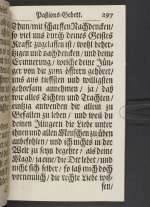 Passions-Gebett. 297
Thun/ mit scharffen Nachdencken/
so viel uns durch deines Geistes
Kraft zugelassen ist/ wohl behertzigen
und nachdencken/ und deine
Erinnerung/ welche deine Jünger
von dir zum öfftern gehöret/
uns aus tieffsten und willigsten
gehorsam annehmen/ ja/ daß
wir alles Tichten und Trachten/
eintzig anwenden dir allein zu
Gefallen zu leben/ und weil du
deinen Jüngern die Liebe unter
ihnen und allen Menschen zu üben
anbefohlen/ und ich nichts in der
Welt zu seyn begehre/ als deine
Magd/ ja eine/ die Dir lebet/ und
nicht sich selber/ so laß mich doch
vornemlich/ die rechte Liebe wissen/